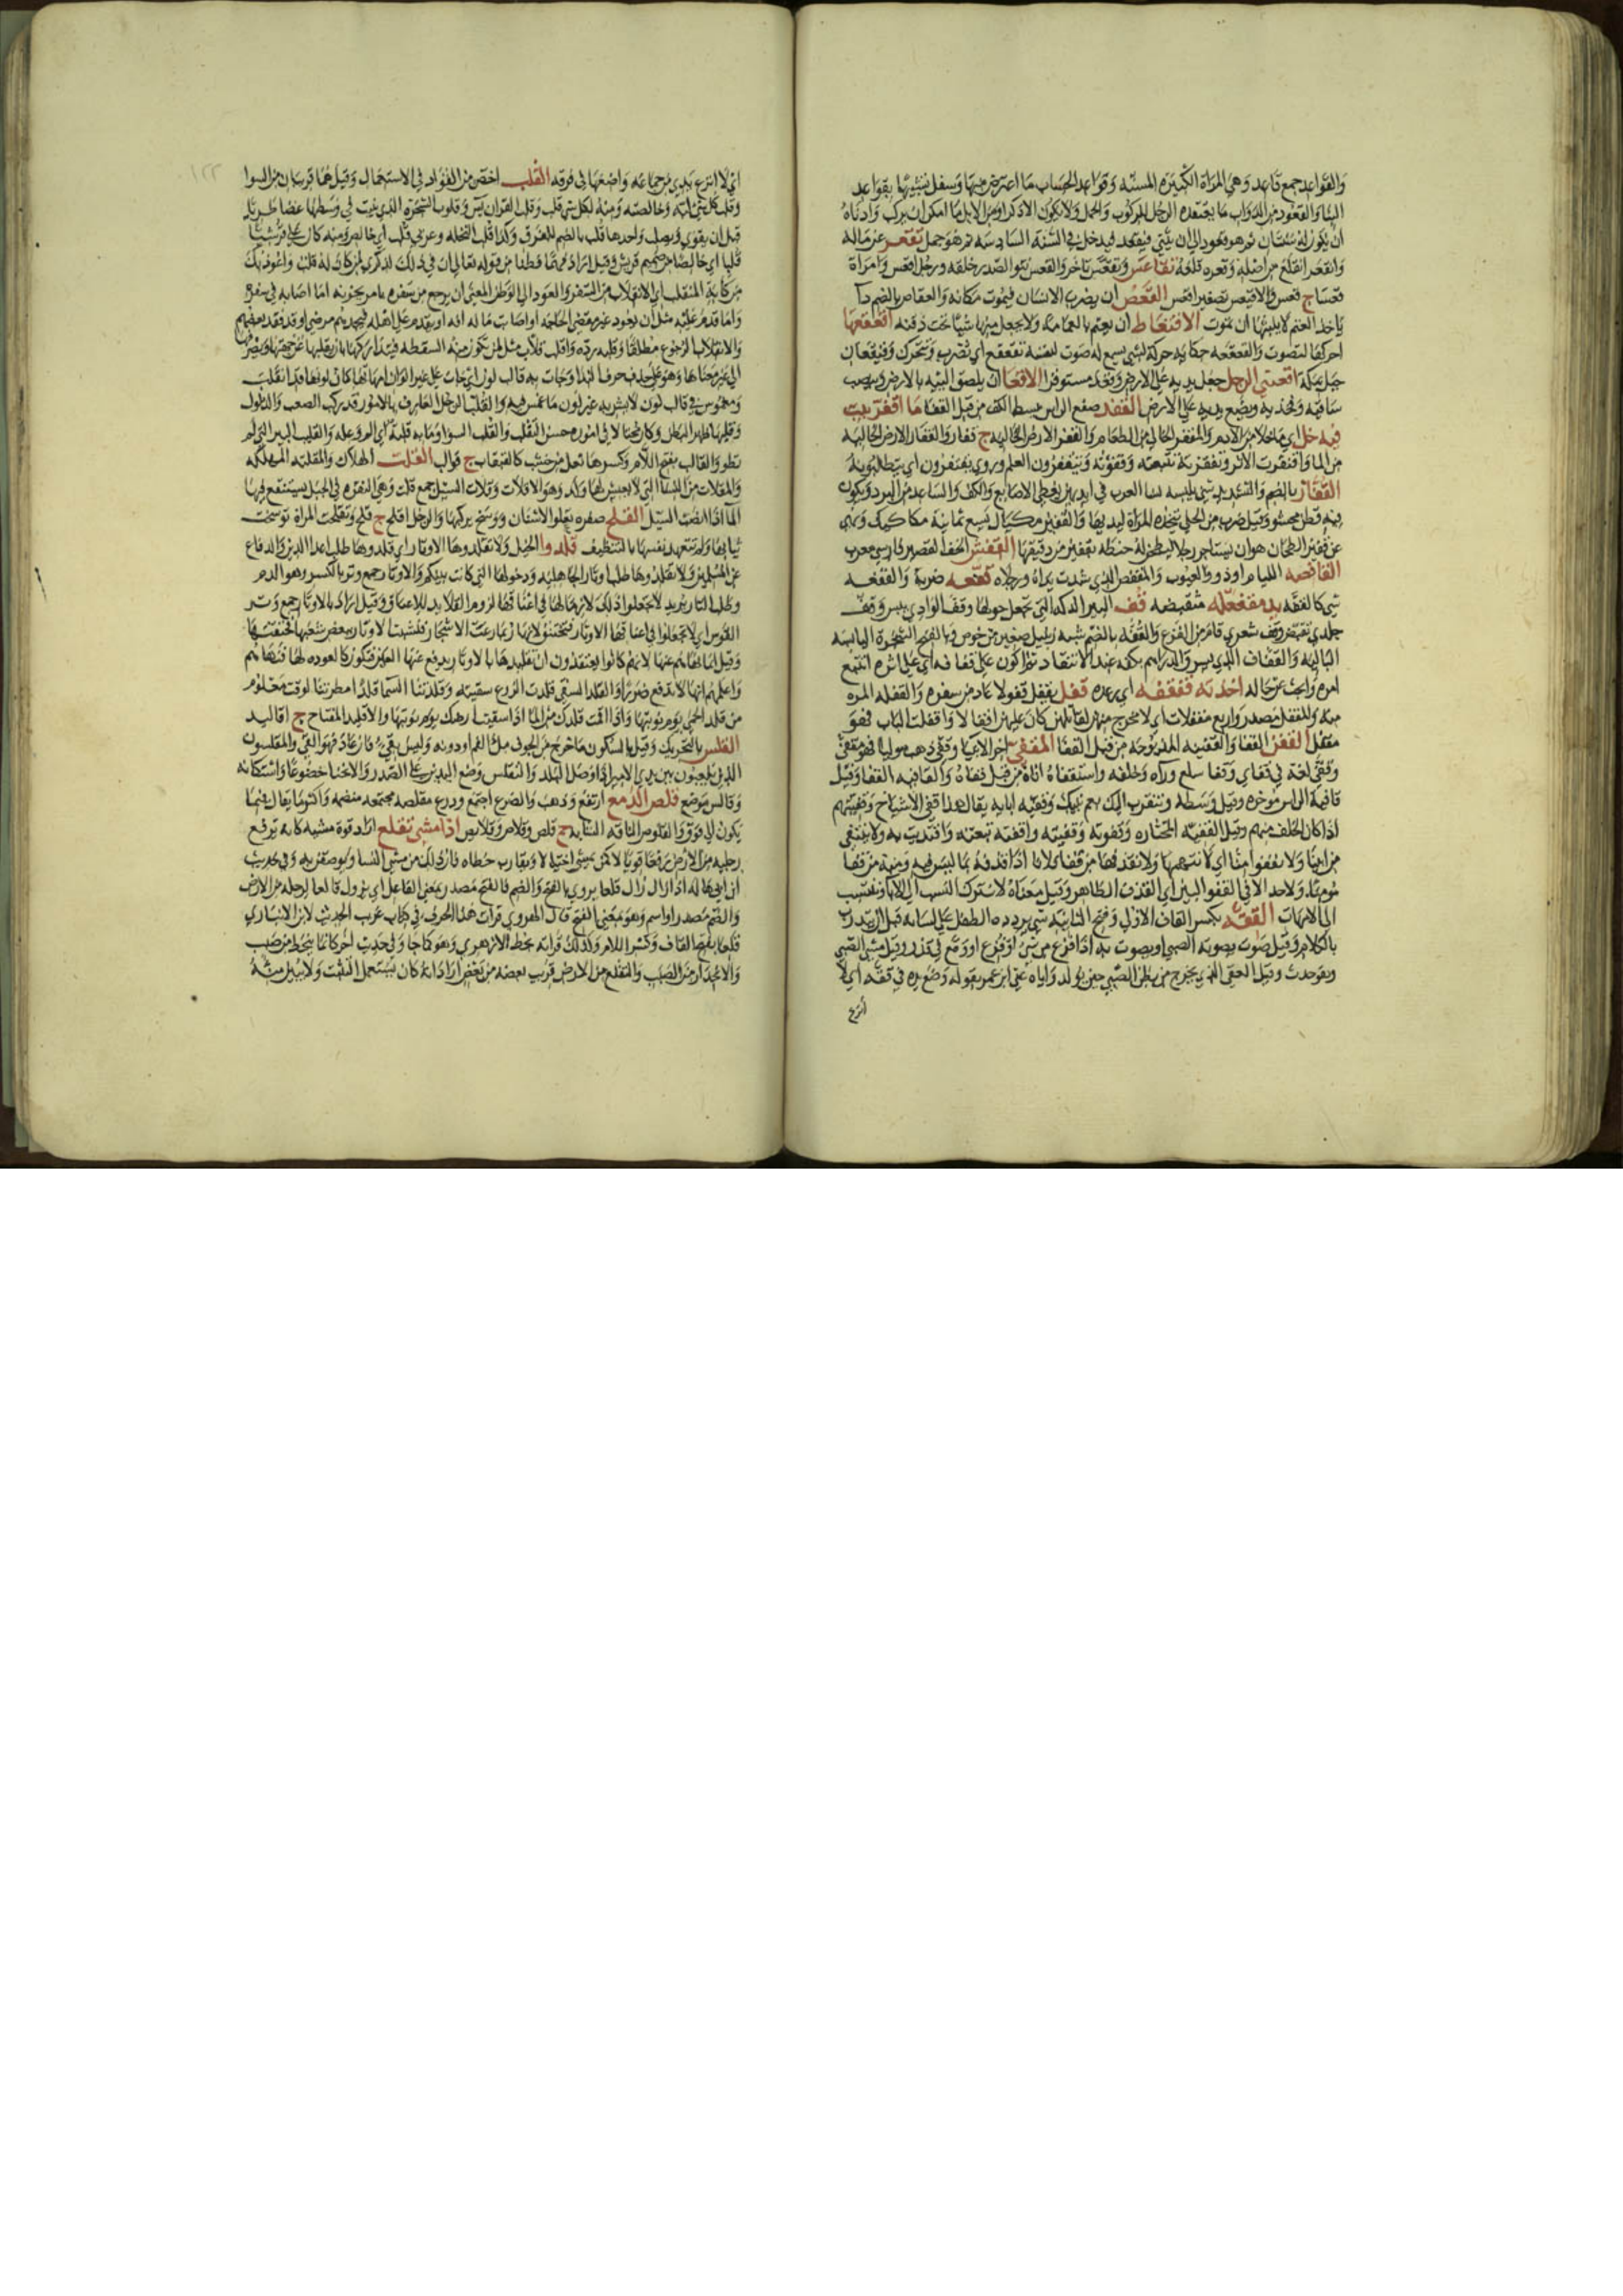 والقواعد جمع قاعد وهي المراة الكبيرة المسنه وقواعد الحساب ما اعترض منها وسفل تشبيها بقواعد
البنا والقعود من الدواب ما يقتعده الرجل للركوب والحمل ولا يكون الا ذكرا ومن الابل ما امكن ان يركب وادناه
ان يكون له سنتان ثم هو قعود الى ان يثني فيدخل في السنة السادسه ثم هو جمل تقعر عن ماله
وانقعر انقلع من اصله وقعره قلعه تقاعس وتقعس تاخر والقعس نتو الصدر خلقه ورجل اقعس وامراة
قعسا ج قعس والاقيعس تصغير اقعس القعص ان يضرب الانسان فيموت مكانه والعقاص بالضم دآ
ياخذ الغنم لا يلبثها ان تموت الاقتعاط ان يعتم بالعمامة ولا يجعل منها شيا تحت ذقنه اقعقعها
احركها لتصوت والقعقعه حكاية حركة لشي يسمع له صوت لنفسه تقعقع اي تضرب وتتحرك وقعيقعان
جبل بمكة اقعنبى الرجل جعل يديه على الارض وقعد مستوفزا الاقعا ان يلصق اليتيه بالارض وينصب
ساقيه وفخذيه ويضع يديه على الارض القفد صفع الراس ببسط الكف من قبل القفا ما اقفر بيت
فيه خل اي ما خلا من الادم والمقفر الخالي من الطعام والقفر الارض الخاليه ج قفار والقفار الارض الخاليه
من الما واقتفرت الاثر وتقفرته تتبعته وقفوته ويتقفرون العلم وروي يقتفرون اي يتطلبونه
القفاز بالضم والتشديد شي يلبسه نسا العرب في ايديهن يغطي الاصابع والكف والساعد من البرد ويكون
فيه قطن محشو وقيل ضرب من الحلي تتخذه المراة ليديها والقفيز مكيال يسع ثمانية مكاكيك ونهي
عن قفيز الطحان هو ان يستاجر رجلا ليطحن له حنطه بقفيز من دقيقها القفش الخف القصير فارسي معرب
القافصه الليام او ذوو العيوب والمقفص الذي شدت يداه ورجلاه قفعه ضربة والقفعه
شي كالقفه يد مقفعلة متقبضه قف البير الدكه التي تجعل حولها وقف الوادي يبس وقف
جلدي تقبض وقف شعري قام من الفزع والقفه بالضم شبه زنبيل صغير من خوص وبالفتح الشجرة اليابسه
الباليه والقفاف الذي يسرق الدراهم بكفه عند الانتقاد
امره وابحث عن حاله اخذته قفقفه اي رعده قفل يقفل قفولا عاد من سفره والقفله المره
منه والمقفل مصدر واربع مقفلات اي لا مخرج منهن لقايلهن كان عليهن اقفالا واقفلت الباب فهو
مقفل القفن القفا والقفينه المذبوحه من قبل القفا المقفى اخر الانبيا وقفى ذهب موليا فهو مقفى
وقفى لغة في قفاي وقفا سلع وراه وخلفه واستقفاه اتاه من قبل قفاه والقافيه القفا وقيل
قافية الراس موخره وقيل وسطه وتتقرب اليك بعم نبيك وقفية ابايه يقال هذا قفي الاشياخ وقفيتهم
اذا كان الخلف منهم وقيل القفية المختاره وقفوته وقفيته واقتفيته تبعته واقتديت به ولا ننتفي
من ابينا ولا نقفوا امنا اي لا نتهمها ولا نقذفها من قفا فلان فلانا اذا قذفه بما ليس فيه ومنه من قفا
مومنا ولا حد الا في القفو البين اي القذف الظاهر وقيل معناه لا نترك النسب الى الابا وننتسب
الى الامهات القفه بكسر القاف الاولى وفتح الثانيه شي يردده الطفل على لسانه قبل ان يتدرب
بالكلام وقيل صوت يصوت به الصبي او يصوت به اذا فزع من شي او فزع او وقع في قذر وقيل مشي الصبي
وهو حدث وقيل العقي الذي يخرج من بطن الصبي حين يولد واياه عنى ابن عمر بقوله وضع يده في ققه اي لا
انزع
اي لا انزع يدي من جماعه واضعها في فرقه القلب اخص من الفواد في الاستعمال وقيل هما قريبان من السوا
وقلب كل شي لبه وخالصه ومنه لكل شي قلب وقلب القران يس وقلوب الشجره الذي ينبت في وسطها غضا طريا
قبل ان يقوى ويصلب واحدها قلب بالضم للفرق وكذا قلب النخله وعربي قلب اي خالص ومنه كان علي قرشيا
قلبا اي خالصا من صميم قريش وقيل اراد فهما فطنا من قوله تعالى ان في ذلك لذكرى لمن كان له قلب واعوذ بك
من كابة المنقلب اي الانقلاب من السفر والعود الى الوطن المعنى ان يرجع من سفره بامر يحزنه اما اصابه في سفره
واما قدم عليه مثل ان يعود غير مقضي الحاجه او اصابت ماله افه او يقدم على اهله فيجدهم مرضى او قد فقد بعضهم
والانقلاب الرجوع مطلقا وقلبه رده
الى غير معناها وهو على حذف حرف الندا وجات به قالب لون اي جات على غير الوان امهاتها كان لونها قد انقلب
ومغموس في قالب لون لا يشوبه غير لون ما غمس فيه والقلب الرجل العارف بالامور قد ركب الصعب والذلول
وقلبها ظهرا لبطن وكان محتالا في اموره حسن التقلب والقلب السوا وما به قلبة اي الم وعله والقليب البير التي لم
تطو والقالب بفتح اللام وكسرها نعل من خشب كالقبقاب ج قوالب القلت الهلاك والمقلته المهلكه
والمقلات من النسا التي لا يعيش لها ولد وهو الاقلات وقلات السيل جمع قلت وهي النقره في الجبل يستنقع فيها
الما اذا انصب السيل القلح صفره تعلو الاسنان ووسخ يركبها والرجل اقلح ج قلح وتقلحت المراة توسخت
ثيابها ولم تتعهد نفسها بالتنظيف قلدوا الخيل ولا تقلدوها الاوتار اي قلدوها طلب اعدا الدين والدفاع
عن المسلمين ولا تقلدوها طلب اوتار الجاهليه ودخولها التي كانت بينكم والاوتار جمع وتر بالكسر وهو الدم
وطلب الثار يريد لا تجعلوا ذلك لازما لها في اعناقها لزوم القلايد للاعناق وقيل اراد بالاوتار جمع وتر
القوس اي لا تجعلوا في اعناقها الاوتار فتختنق لانها ربما رعت الاشجار فنشبت الاوتار ببعض شعبها فخنقتها
وقيل انما نهاهم عنها لانهم كانوا يعتقدون ان تقليدها بالاوتار يدفع عنها العين فتكون كالعوذه لها فنهاهم
واعلمهم انها لا تدفع ضررا والقلد السقي قلدت الزرع سقيته وقلدتنا السما قلدا مطرتنا لوقت معلوم
من قلد الحمى يوم نوبتها واذا اقمت قلدك من الما اذا سقيت ارضك يوم نوبتها والاقليد المفتاح ج اقاليد
القلس بالتحريك وقيل بالسكون ما خرج من الجوف مل الفم او دونه وليس بقي فان عاد فهو القي والمقلسون
الذين يلعبون بين يدي الامير اذا وصل البلد والتقليس وضع اليدين على الصدر والانحنا خضوعا واستكانه
وقالس موضع قلص الدمع ارتفع وذهب والضرع اجتمع ودرع مقلصه مجتمعه منضمه واكثر ما يقال فيما
يكون الى فوق والقلوص الناقه الشابه ج قلص وقلاص وقلايص اذا مشى تقلع اراد قوة مشيه كانه يرفع
رجليه من الارض رفعا قويا لا كمن يمشي اختيالا ويقارب خطاه فان ذلك من مشي النسا ويوصفن به وفي حديث
ابن ابي هاله اذا زال زال قلعا يروى بالفتح والضم فالفتح مصدر بمعنى الفاعل اي يزول قالعا لرجله من الارض
والضم مصدر او اسم وهو بمعنى الفتح قال الهروي قرات هذا الحرف في كتاب غريب الحديث لابن الانباري
قلعا بفتح القاف وكسر اللام وكذلك قراته بخط الازهري وهو كما جا وفي حديث اخر كانما ينحط من صبب
والانحدار من الصبب والتقلع من الارض قريب بعضه من بعض اراد انه كان يستعمل التثبت ولا يبين منه